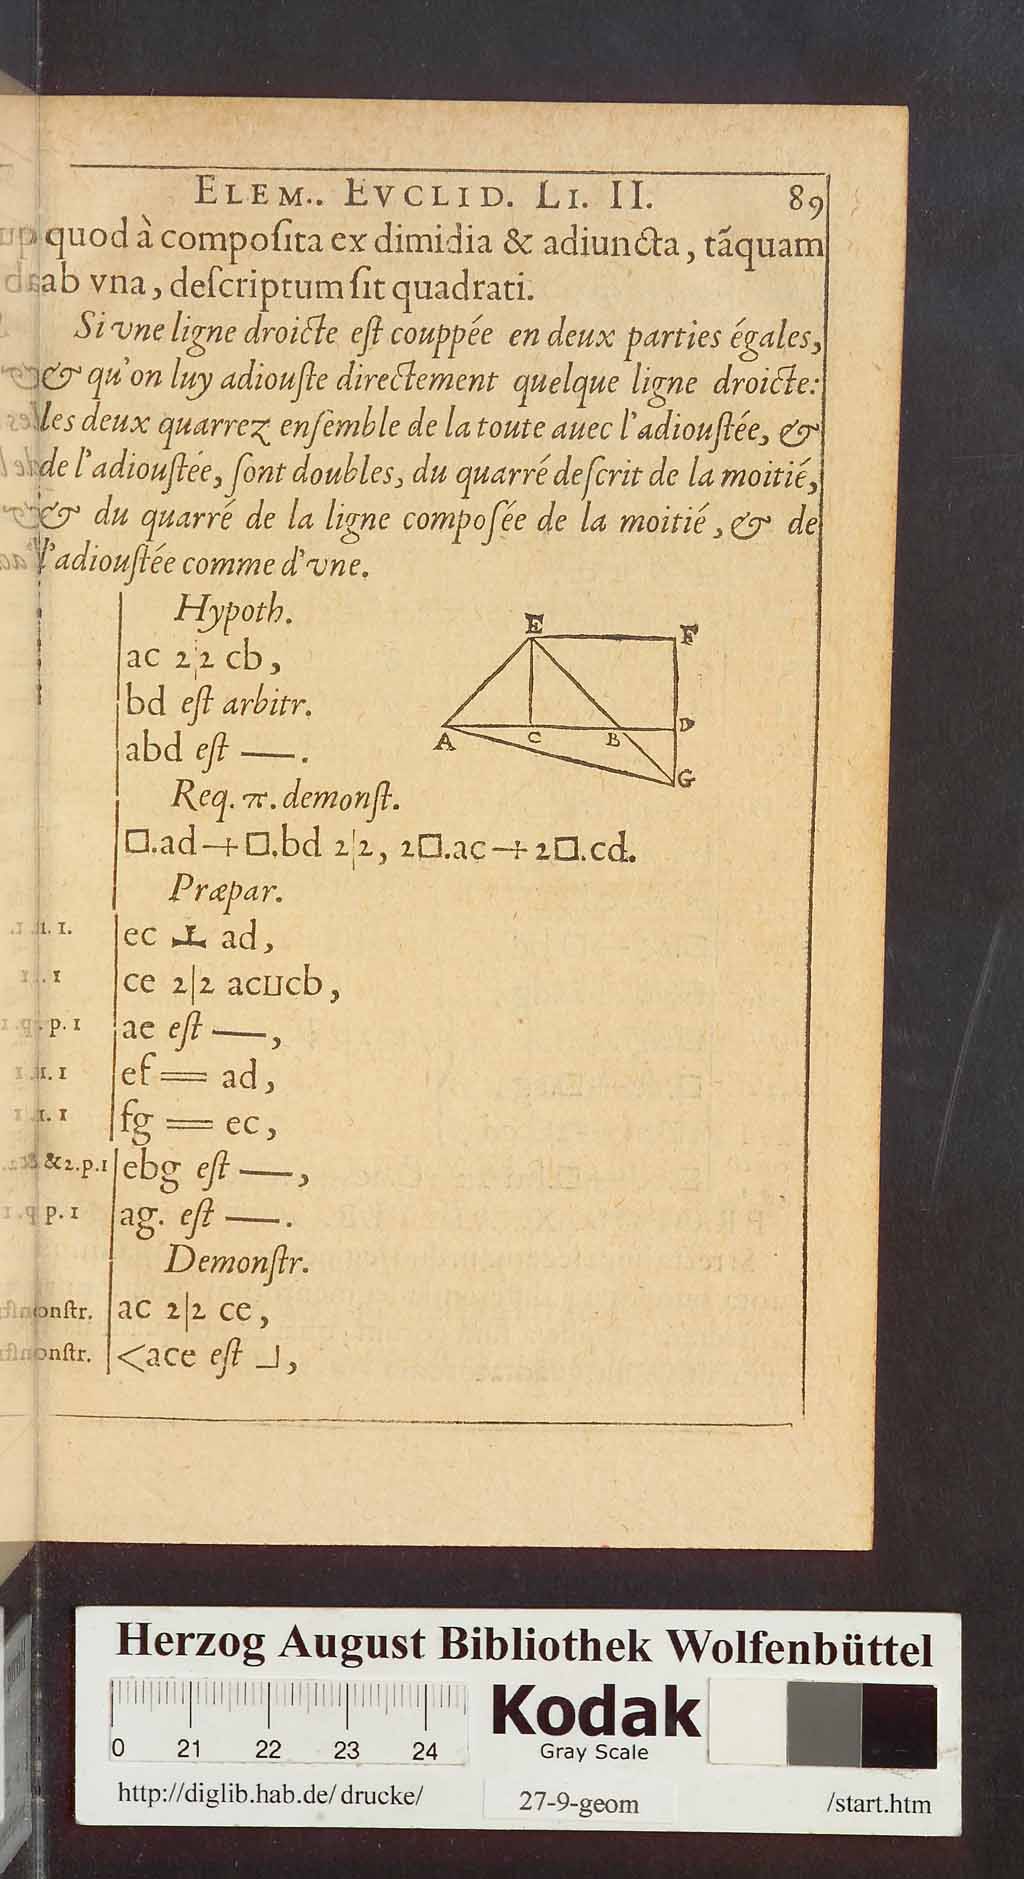 ELEM.. EVCLID. LI. II. 89
quod à compoſita ex dimidia & adiuncta, tãquam
ab vna, deſcriptum ſit quadrati.
Si vne ligne droicte eſt couppée en deux parties égales,
& qu'on luy adiouſte directement quelque ligne droicte:
les deux quarrez enſemble de la toute auec l'adiouſtée, &
de l'adiouſtée, ſont doubles, du quarré deſcrit de la moitié,
& du quarré de la ligne compoſée de la moitié, & de
l'adiouſtée comme d'vne.
Hypoth.
ac 2|2 cb,
bd eſt arbitr.
abd eſt —.
E F
A C B D
G
Req. π. demonſt.
□.ad + □.bd 2|2, 2□.ac + 2□.cd.
Præpar.
11. 1. ec ⊥ ad,
1 ce 2|2 ac⊔cb,
p. 1 ae eſt —,
1. 1 ef = ad,
1. 1 fg = ec,
&2.p.1 ebg eſt —,
p. 1 ag. eſt —.
Demonſtr.
onſtr. ac 2|2 ce,
onſtr. <ace eſt ⅃,
Herzog August Bibliothek Wolfenbüttel
0 21 22 23 24
Kodak
Gray Scale
http://diglib.hab.de/ drucke/ 27-9-geom /start.htm